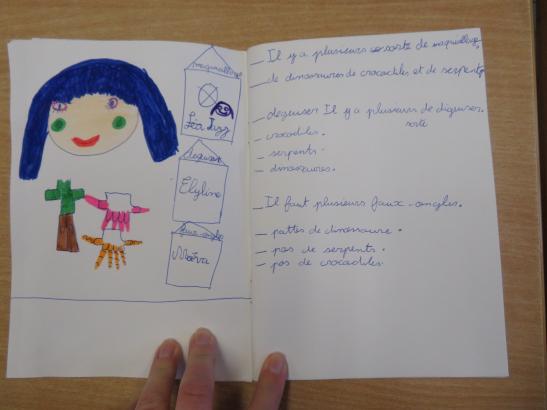 maquillage
Léa Lizz
deguiser
Elyline
faux-ongles
Maéva
— Il y a plusieurs sorte de maquillage,
— de dinosaures de crocodiles et de serpents
— deguiser Il y a plusieurs de déguiser.
sorte
— crocodiles.
— serpents.
— dinosaures.
— Il faut plusieurs faux-ongles.
— pattes de dinosaure.
— pas de serpents.
— pas de crocodiles